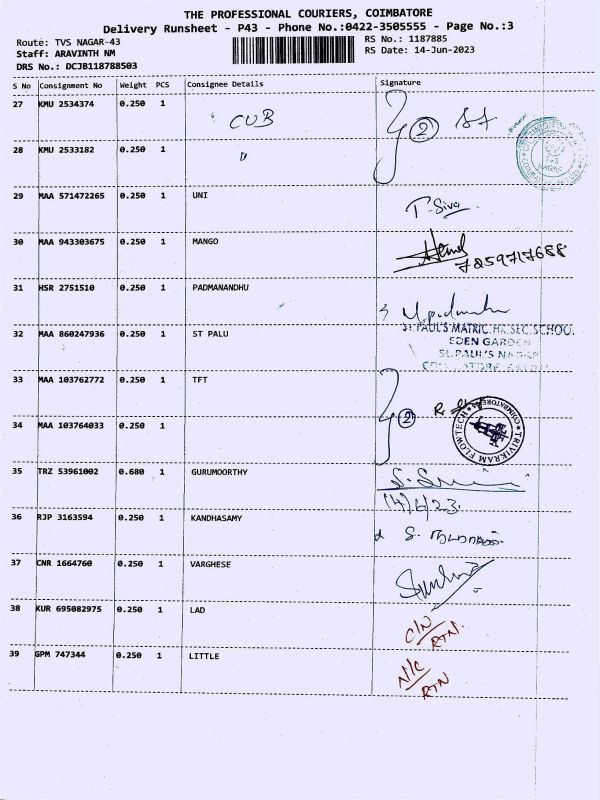 THE PROFESSIONAL COURIERS, COIMBATORE
Delivery Runsheet - P43 - Phone No.:0422-3505555 - Page No.:3
Route: TVS NAGAR-43
RS No.: 1187885
Staff: ARAVINTH NM
RS Date: 14-Jun-2023
DRS No.: DCJB118788503
S No Consignment No Weight PCS Consignee Details Signature
27 KMU 2534374 0.250 1 CUB
2
28 KMU 2533182 0.250 1 "
TVS NAGAR
29 MAA 571472265 0.250 1 UNI T. Siva
30 MAA 943303675 0.250 1 MANGO
7259717688
31 HSR 2751510 0.250 1 PADMANANDHU
32 MAA 860247936 0.250 1 ST PALU
ST.PAUL'S MATRIC.HR.SEC.SCHOOL
EDEN GARDEN
ST.PAUL'S NAGAR
33 MAA 103762772 0.250 1 TFT
2
TRIVIKRAM FLOWTECH COIMBATORE
34 MAA 103764033 0.250 1
35 TRZ 53961002 0.680 1 GURUMOORTHY
14/6/23
36 RJP 3163594 0.250 1 KANDHASAMY
37 CNR 1664760 0.250 1 VARGHESE
38 KUR 695082975 0.250 1 LAD
C/N RTN
39 GPM 747344 0.250 1 LITTLE
N/C RTN